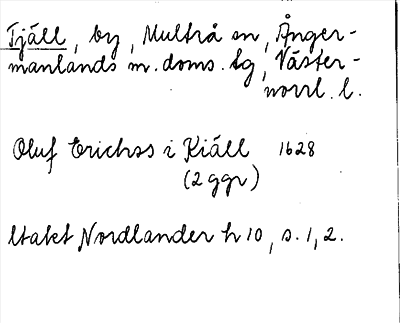 Tjäll, by, Multrå sn, Ånger-
manlands m. doms. tg, Väster-
norrl. l.
Oluf Erichss i Kiäll 1628
(2 ggr)
ltakt Nordlander h 10, s. 1, 2.